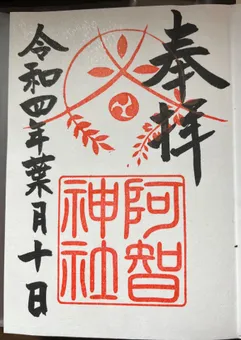 奉拝
阿智
神社
令和四年葉月十日